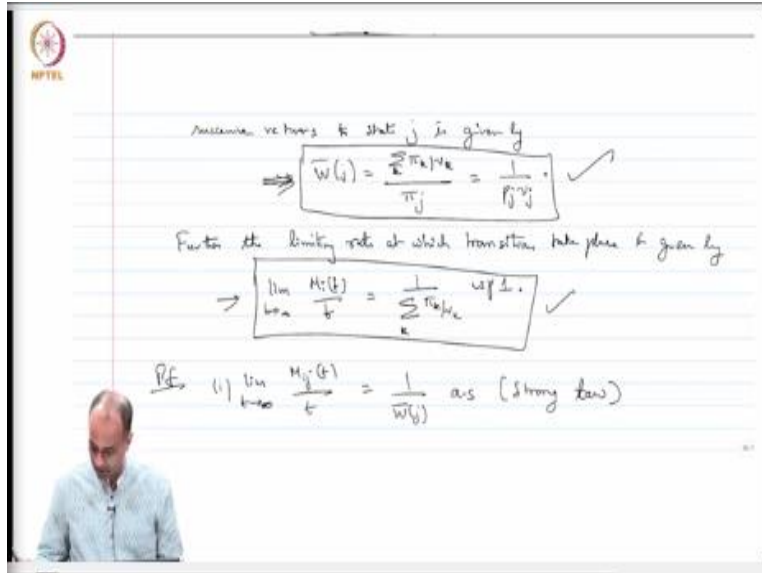 NPTEL
successive returns to state j is given by
⇒ W̄(j) = Σ_k π_k/ν_k / π_j = 1/(p_j ν_j) . ✓
Further the limiting rate at which transitions take place is given by
→ lim_{t→∞} M_i(t)/t = 1/(Σ_k π_k/ν_k) wp 1. ✓
Pf (i) lim_{t→∞} M_{ij}(t)/t = 1/W̄(j) a.s (Strong law)